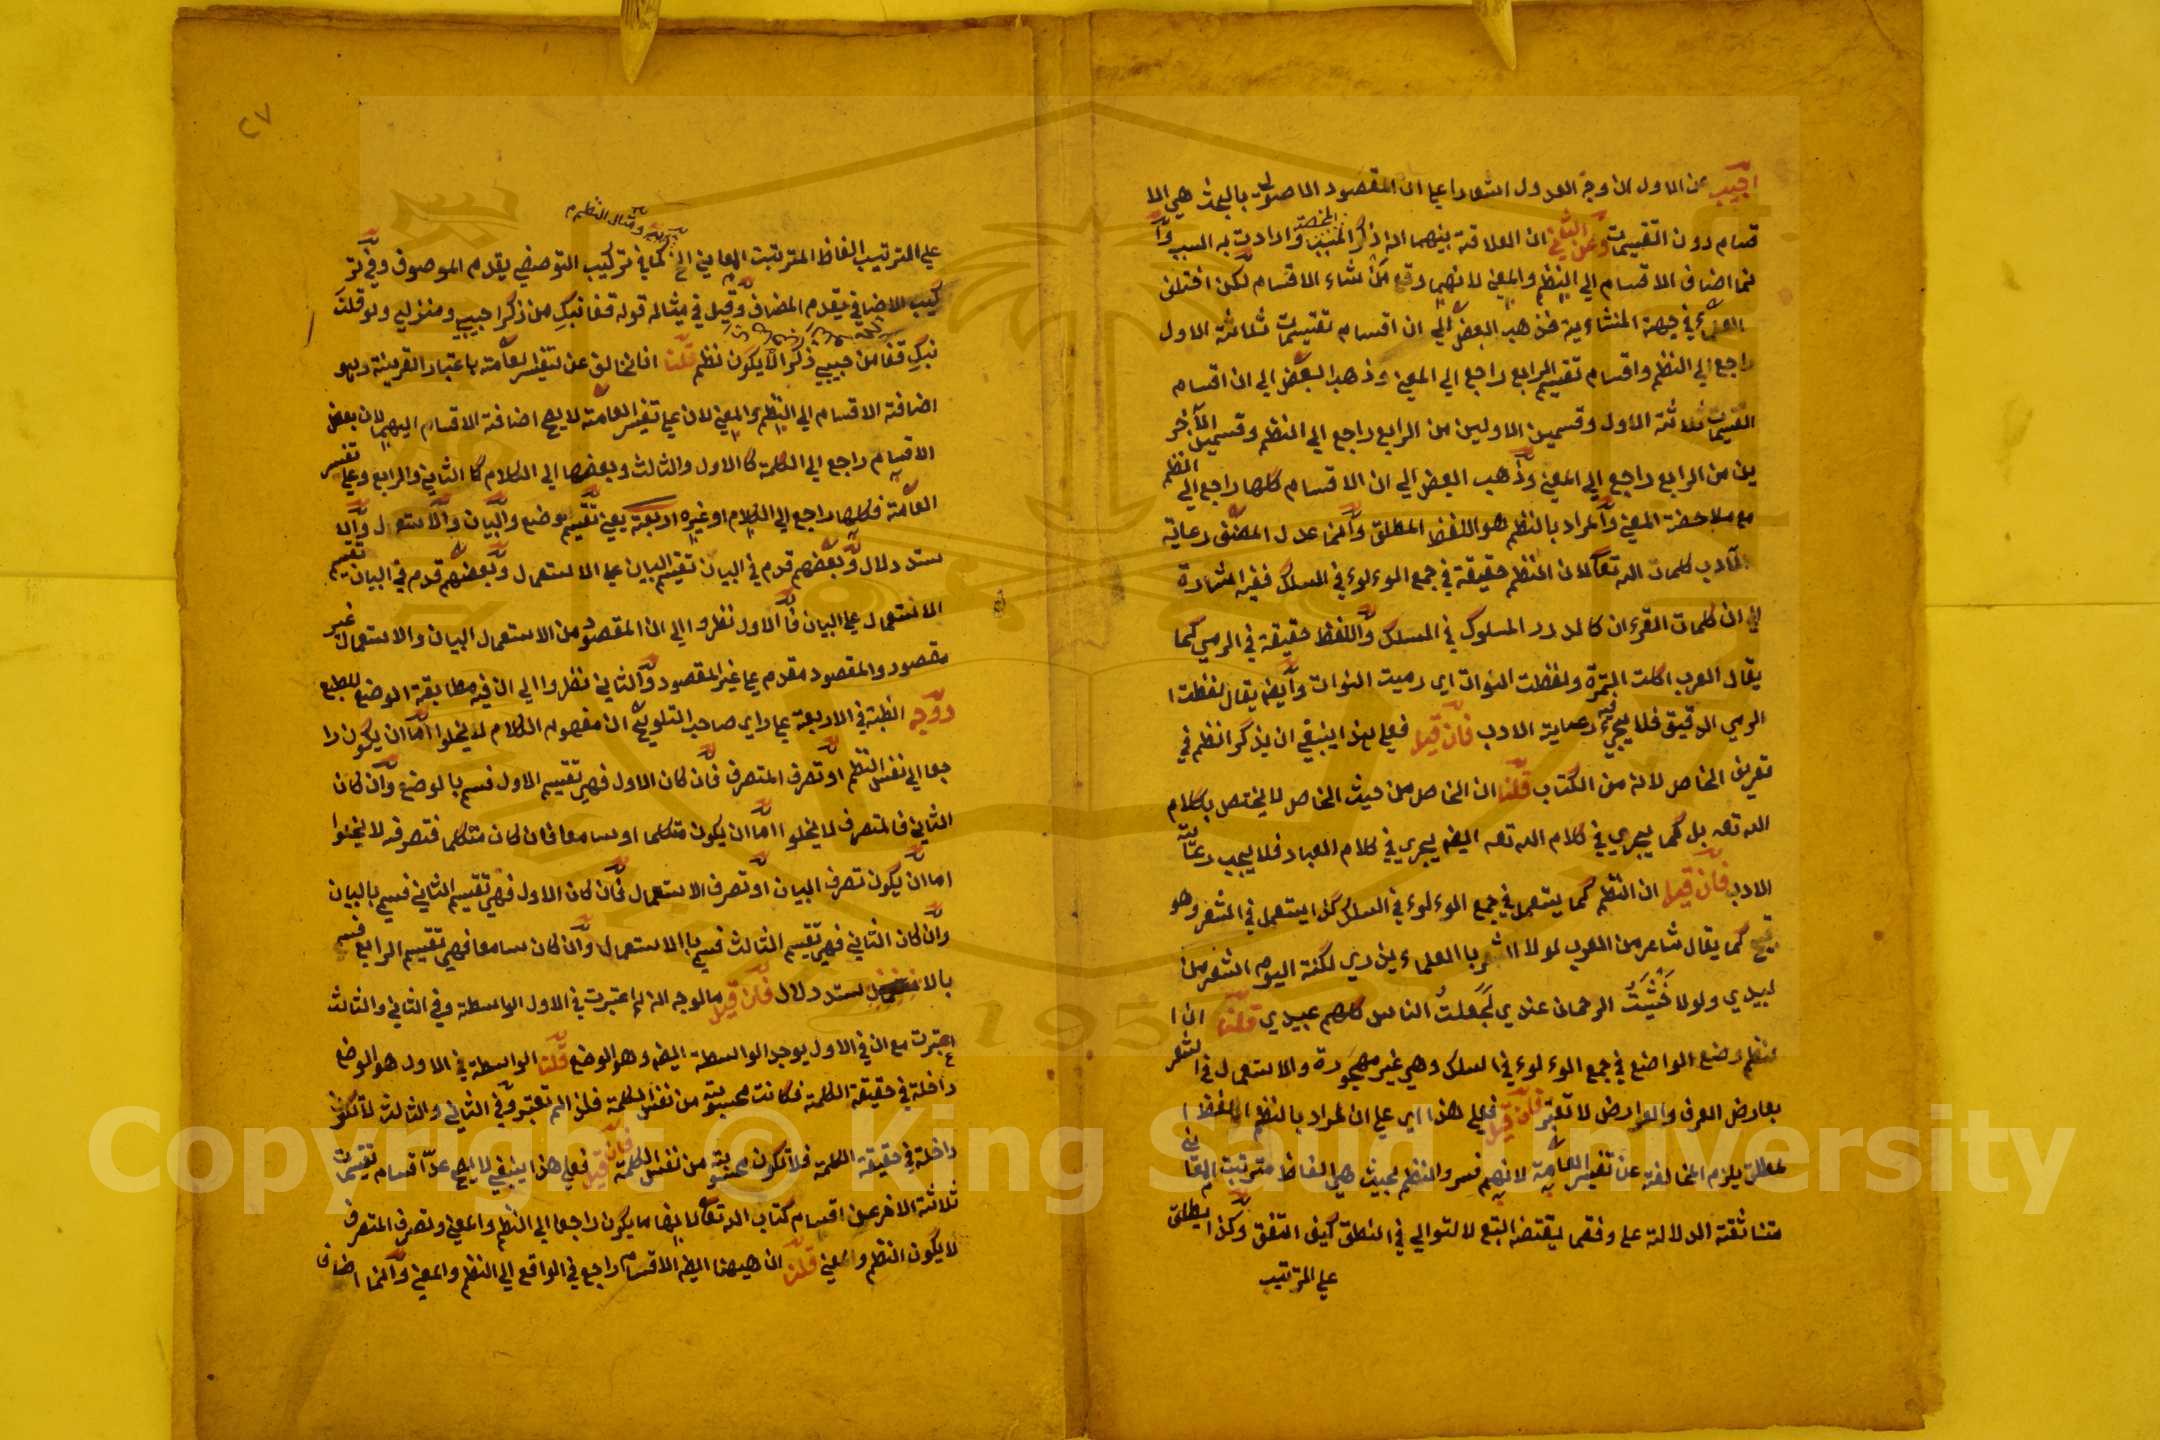 اجيب عن الاول ان وجه العدول اشعارا علي ان المقصود الاصولي بالبحث هي الا
قسام دون التقسيمات وعن الثاني ان العلاقة بينهما انه ذكر المسبب وارادت به السبب وا
نما اضاف الاقسام الي النظم والمعني لانهما وقع منشاء الاقسام لكن اختلف
العلماء في جهة المنشائية فذهب البعض الي ان اقسام تقسيمات ثلاثة الاول
راجع الي النظم واقسام تقسيم الرابع راجع الي المعني وذهب البعض الي ان اقسام
التقسيمات ثلاثة الاول وقسمين الاولين من الرابع راجع الي النظم وقسمين الآخر
ين من الرابع راجع الي المعني وذهب البعض الي ان الاقسام كلها راجع الي النظم
مع ملاحضة المعني والمراد بالنظم هو اللفظ المطلق وانما عدل المصنف رعاية
لآدب كلمات الله تعالى لان النظم حقيقة في جمع الوءلوء في السلك ففيه اشارة
الي ان كلمات القرءان كالدرر المسلوك في السلك واللفظ حقيقة في الرمي كما
يقال العرب اكلت التمرة ولفظت النوات اي رميت النوات وايضا يقال لفظت ا
لرمي الدقيق فلا يجري فيه رعاية الادب فان قيل فعلي هذا ينبغي ان يذكر النظم في
تعريف الخاص لانه من الكتاب قلنا ان الخاص من حيث الخاص لا يختص بكلام
الله تعه بل كما يجري في كلام الله تعه ايضه يجري في كلام العباد فلا يجب رعاية
الادب فان قيل ان النظم كما يستعمل في جمع الوءلوء في السلك كذا يستعمل في الشعر وهو
قبيح كما يقال شاعر من العرب لولا الشعر بالعلماء يذري لكنت اليوم اشعر من
لبيدي ولولا خشيت الرحمان عندي لجعلت الناس كلهم عبيدي قلنا ان ا
لنظم وضع الواضع في جمع الوءلوء في السلك وهي غير مهجورة والاستعمال في الشعر
بعارض العرف والعوارض لا تعتبر فان قيل فعلي هذا اي علي ان المراد بالنظم اللفظ ا
لمطلق يلزم المخالفة عن تفسير العامة لانهم فسروا النظم بحيث هي الفاظ مترتبت المعاني
متناسقة الدلالة علي وفق ما يقتضه التبع لا لتوالي في النطق كيف اتفق وكذا يطلق
علي الترتيب
٢٧
علي الترتيب الفاظ المترتبت المعاني الخ كما في تركيب التوصيفي يقدم الموصوف وفي تر
كيب الاضافي يقدم المضاف وقيل في مثاله قوله قفا نبك من ذكرا حبيبي ومنزلي ولو قلت
نبك قفا من حبيبي ذكرا لا يكون نظم قلنا انا نخالف عن تفسير العامة باعتبار القرينة وهو
اضافة الاقسام الي النظم والمعني لان علي تفسير العامة لا يصح اضافة الاقسام اليهما لان بعض
الاقسام راجع الي الكلمة كا الاول والثالث وبعضها الي الكلام كا الثاني والرابع وعلي تفسير
العامة فكلها راجع الي الكلام او غيره اربعة يعني تقسيم بوضع والبيان والاستعمال والا
ستد دلال وبعضهم قدم في البيان تقسيم البيان علي الاستعمال وبعضهم قدم في البيان تقسيم
الاستعمال علي البيان فالاول نظروا الي ان المقصود من الاستعمال البيان والاستعمال غير
مقصود والمقصود مقدم علي غير المقصود والثاني نظروا الي ان فيه مطابقة الوضع للطبع
ووجه الظبة في الاربعة علي راي صاحب التلويح ان مفهوم الكلام لا يخلوا اما ان يكون را
جعا الي نفس النظم او تصرف المتصرف فان كان الاول فهي تقسيم الاول قسم بالوضع وان كان
الثاني فالمتصرف لا يخلوا اما ان يكون متكلما او سامعا فان كان متكلما فتصرفه لا يخلوا
اما ان يكون تصرف البيان او تصرف الاستعمال فان كان الاول فهي تقسيم الثاني قسم بالبيان
وان كان الثاني فهي تقسيم الثالث قسم باالاستعمال وان كان سامعا فهي تقسيم الرابع قسم
بالا ستد دلال فان قيل ما لوجه انه لم اعتبرت في الاول الواسطة وفي الثاني والثالث
اعتبرت مع ان في الاول يوجد الواسطة ايضه وهو الوضع قلنا الواسطة في الاول هو الوضع
داخلة في حقيقة الكلمة فكانت محسوبة من نفس الكلمة فلذا لم تعتبر وفي الثاني والثالث لا تكون
داخلة في حقيقة الكلمة فلا تكون محسوبة من نفس الكلمة فان قيل فعلي هذا ينبغي لا يصح عد اقسام تقسيمات
ثلاثة الاخر من اقسام كتاب الله تعالى لانها ما يكون راجعا الي النظم والمعني وتصرف المتصرف
لا يكون النظم والمعني قلنا ان هيهنا ايضه الاقسام راجع في الواقع الي النظم والمعني وانما اضاف
Copyright © King Saud University
1957